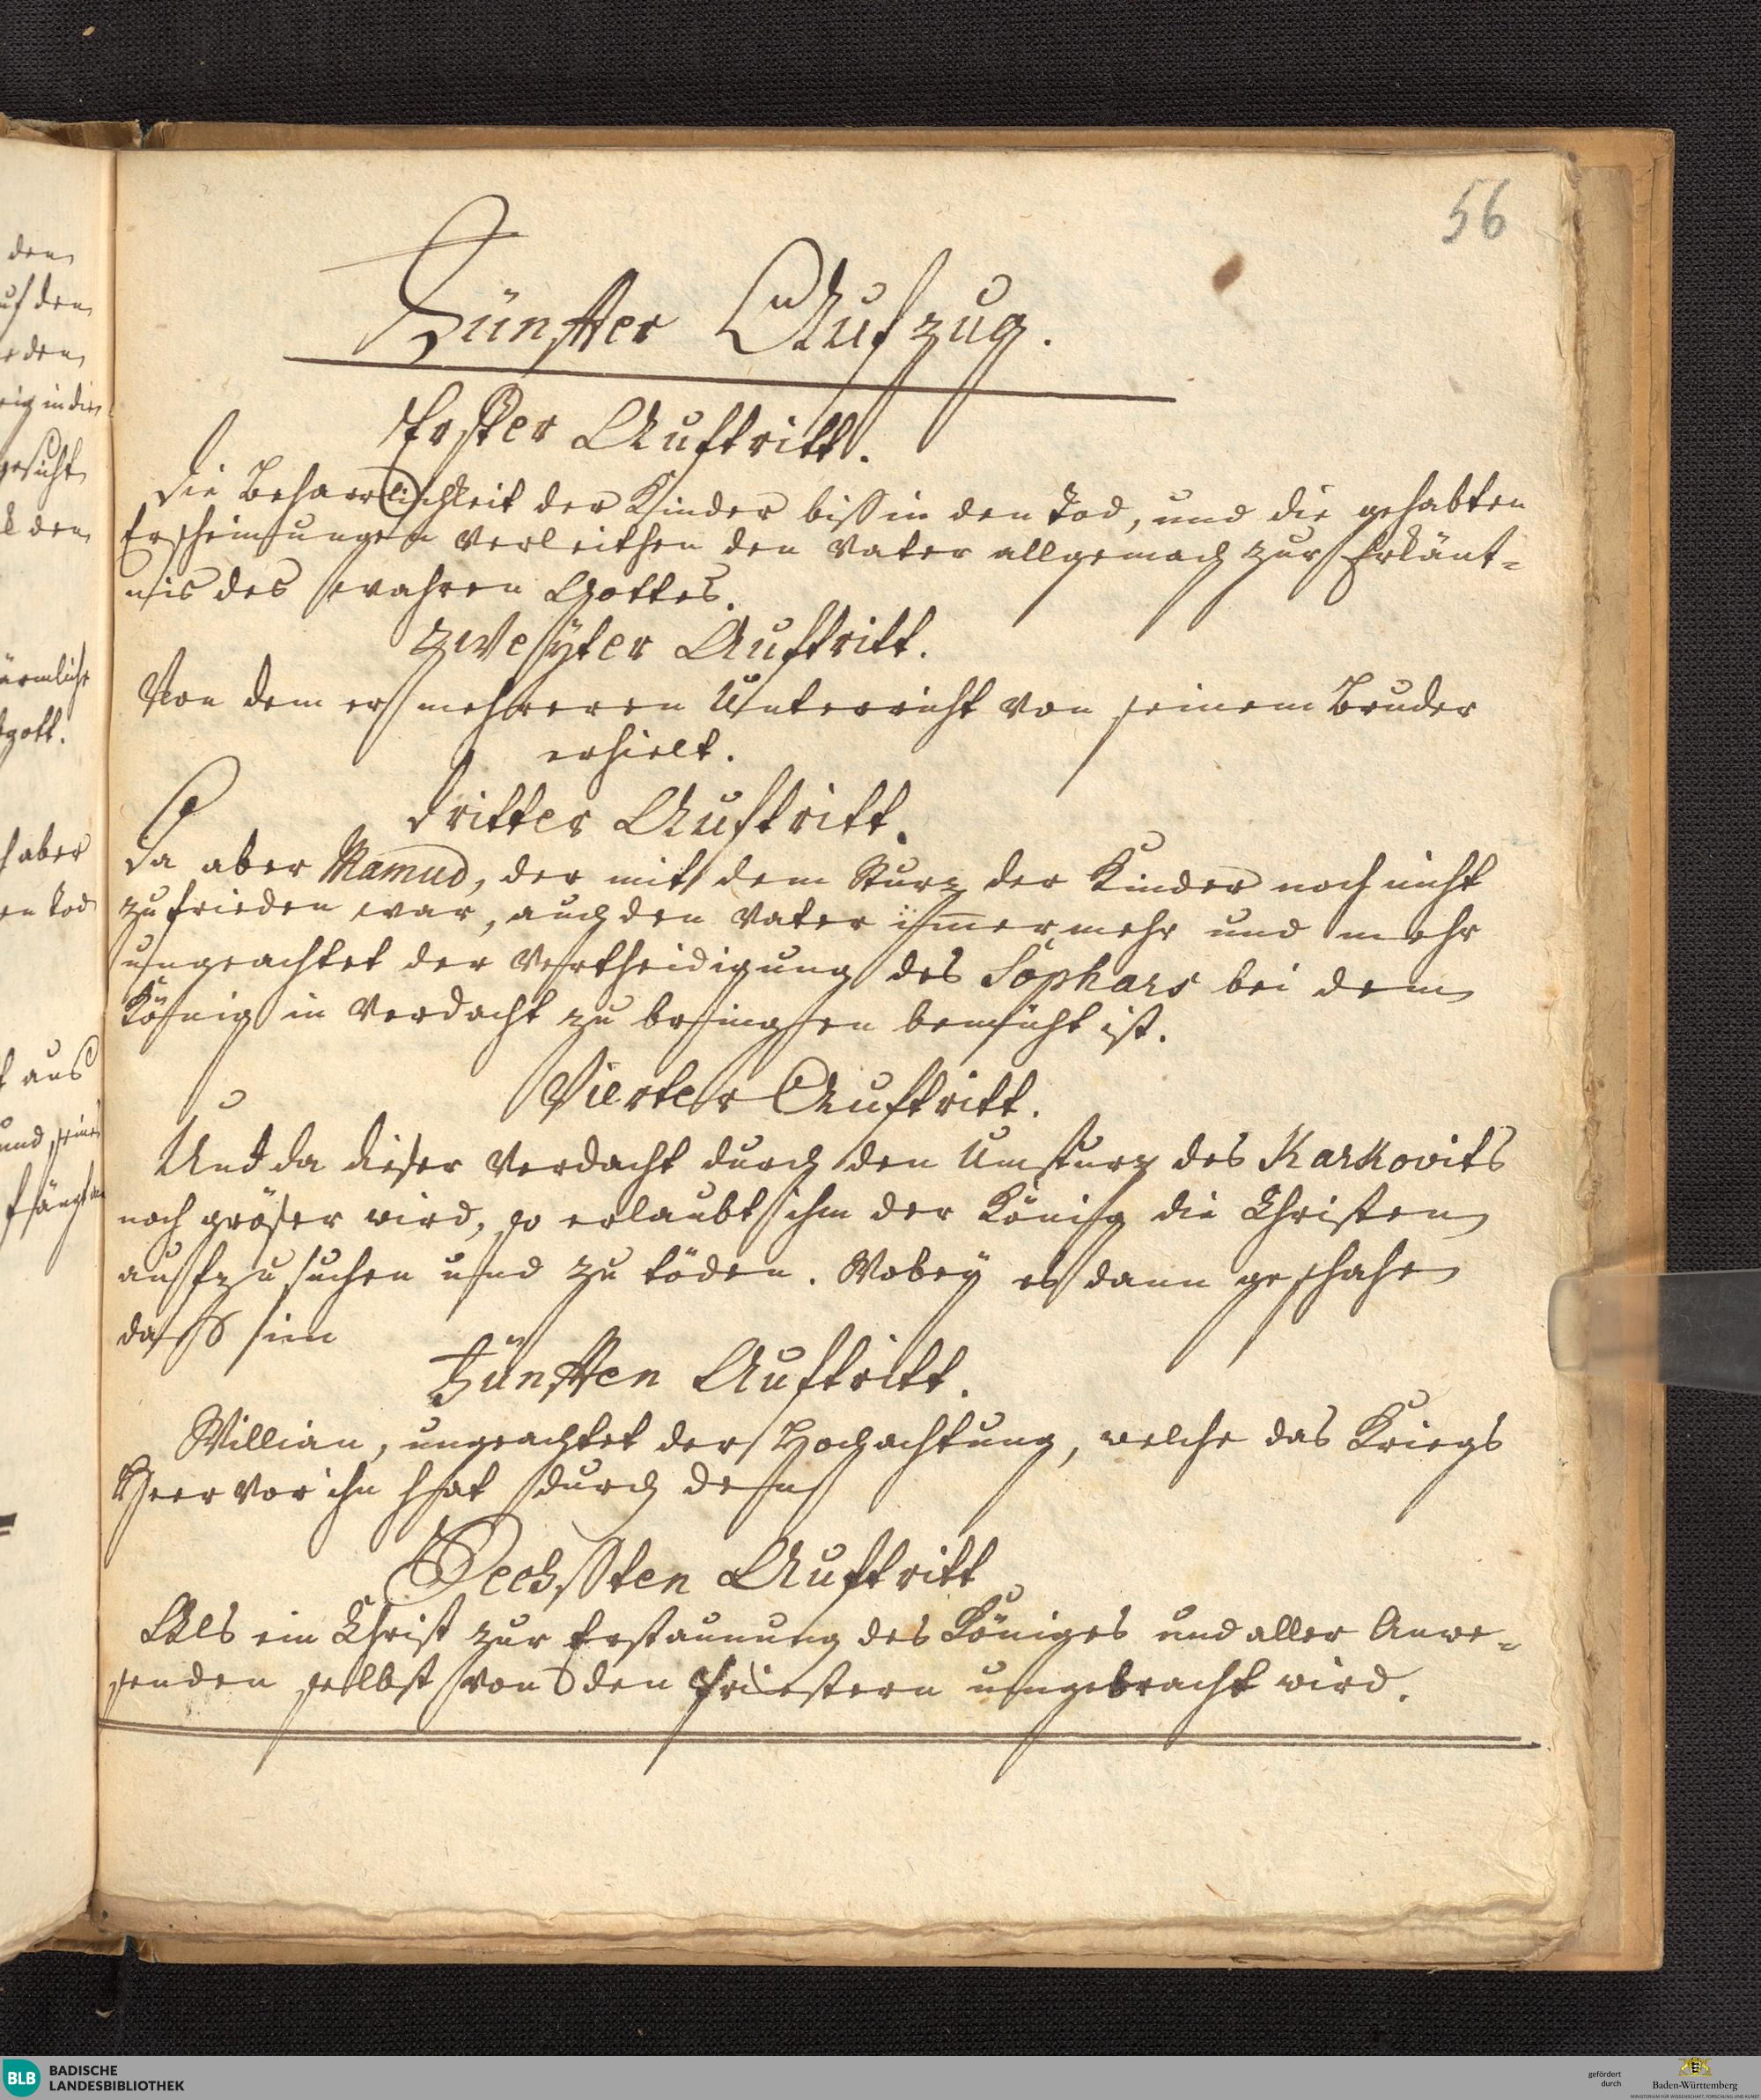 56
Fünffter Aufzug.
Erster Auftritt.
Die Beharrlichkeit der Kinder biß in den Tod, und die gehabten
Erscheinungen verleithen den Vater allgemach zur Erkänt=
nis des wahren Gottes.
Zweyter Auftritt.
Von dem er mehreren Unterricht von seinem Bruder
erhielt.
Dritter Auftritt.
Da aber Mamud, der mit dem Sturz der Kinder noch nicht
zufrieden war, auch den Vater im̅er mehr und mehr
ungeachtet der Vertheidigung des Sophars bei dem
König in Verdacht zu bringen bemüht ist.
Vierter Auftritt.
Und da dieser Verdacht durch den Umsturz des Karkovits
noch gröser wird, so erlaubt ihm der König die Christen
aufzusuchen und zu töden. Wobey es dann geschahe
daß im
Fünfften Auftritt.
Willian, ungeachtet der Hochachtung, welche das Kriegs
Heer vor ihn hat durch den
Sechsten Auftritt
Als ein Christ zur Erstaunung des Königes und aller Anwe=
senden selbst von den Priestern umgebracht wird.
den
auf den
eden
gesicht
ärmliche
gott.
aber
Tod
aus
und seine
BLB BADISCHE
LANDESBIBLIOTHEK
gefördert
durch
Baden-Württemberg
MINISTERIUM FÜR WISSENSCHAFT, FORSCHUNG UND KUNST